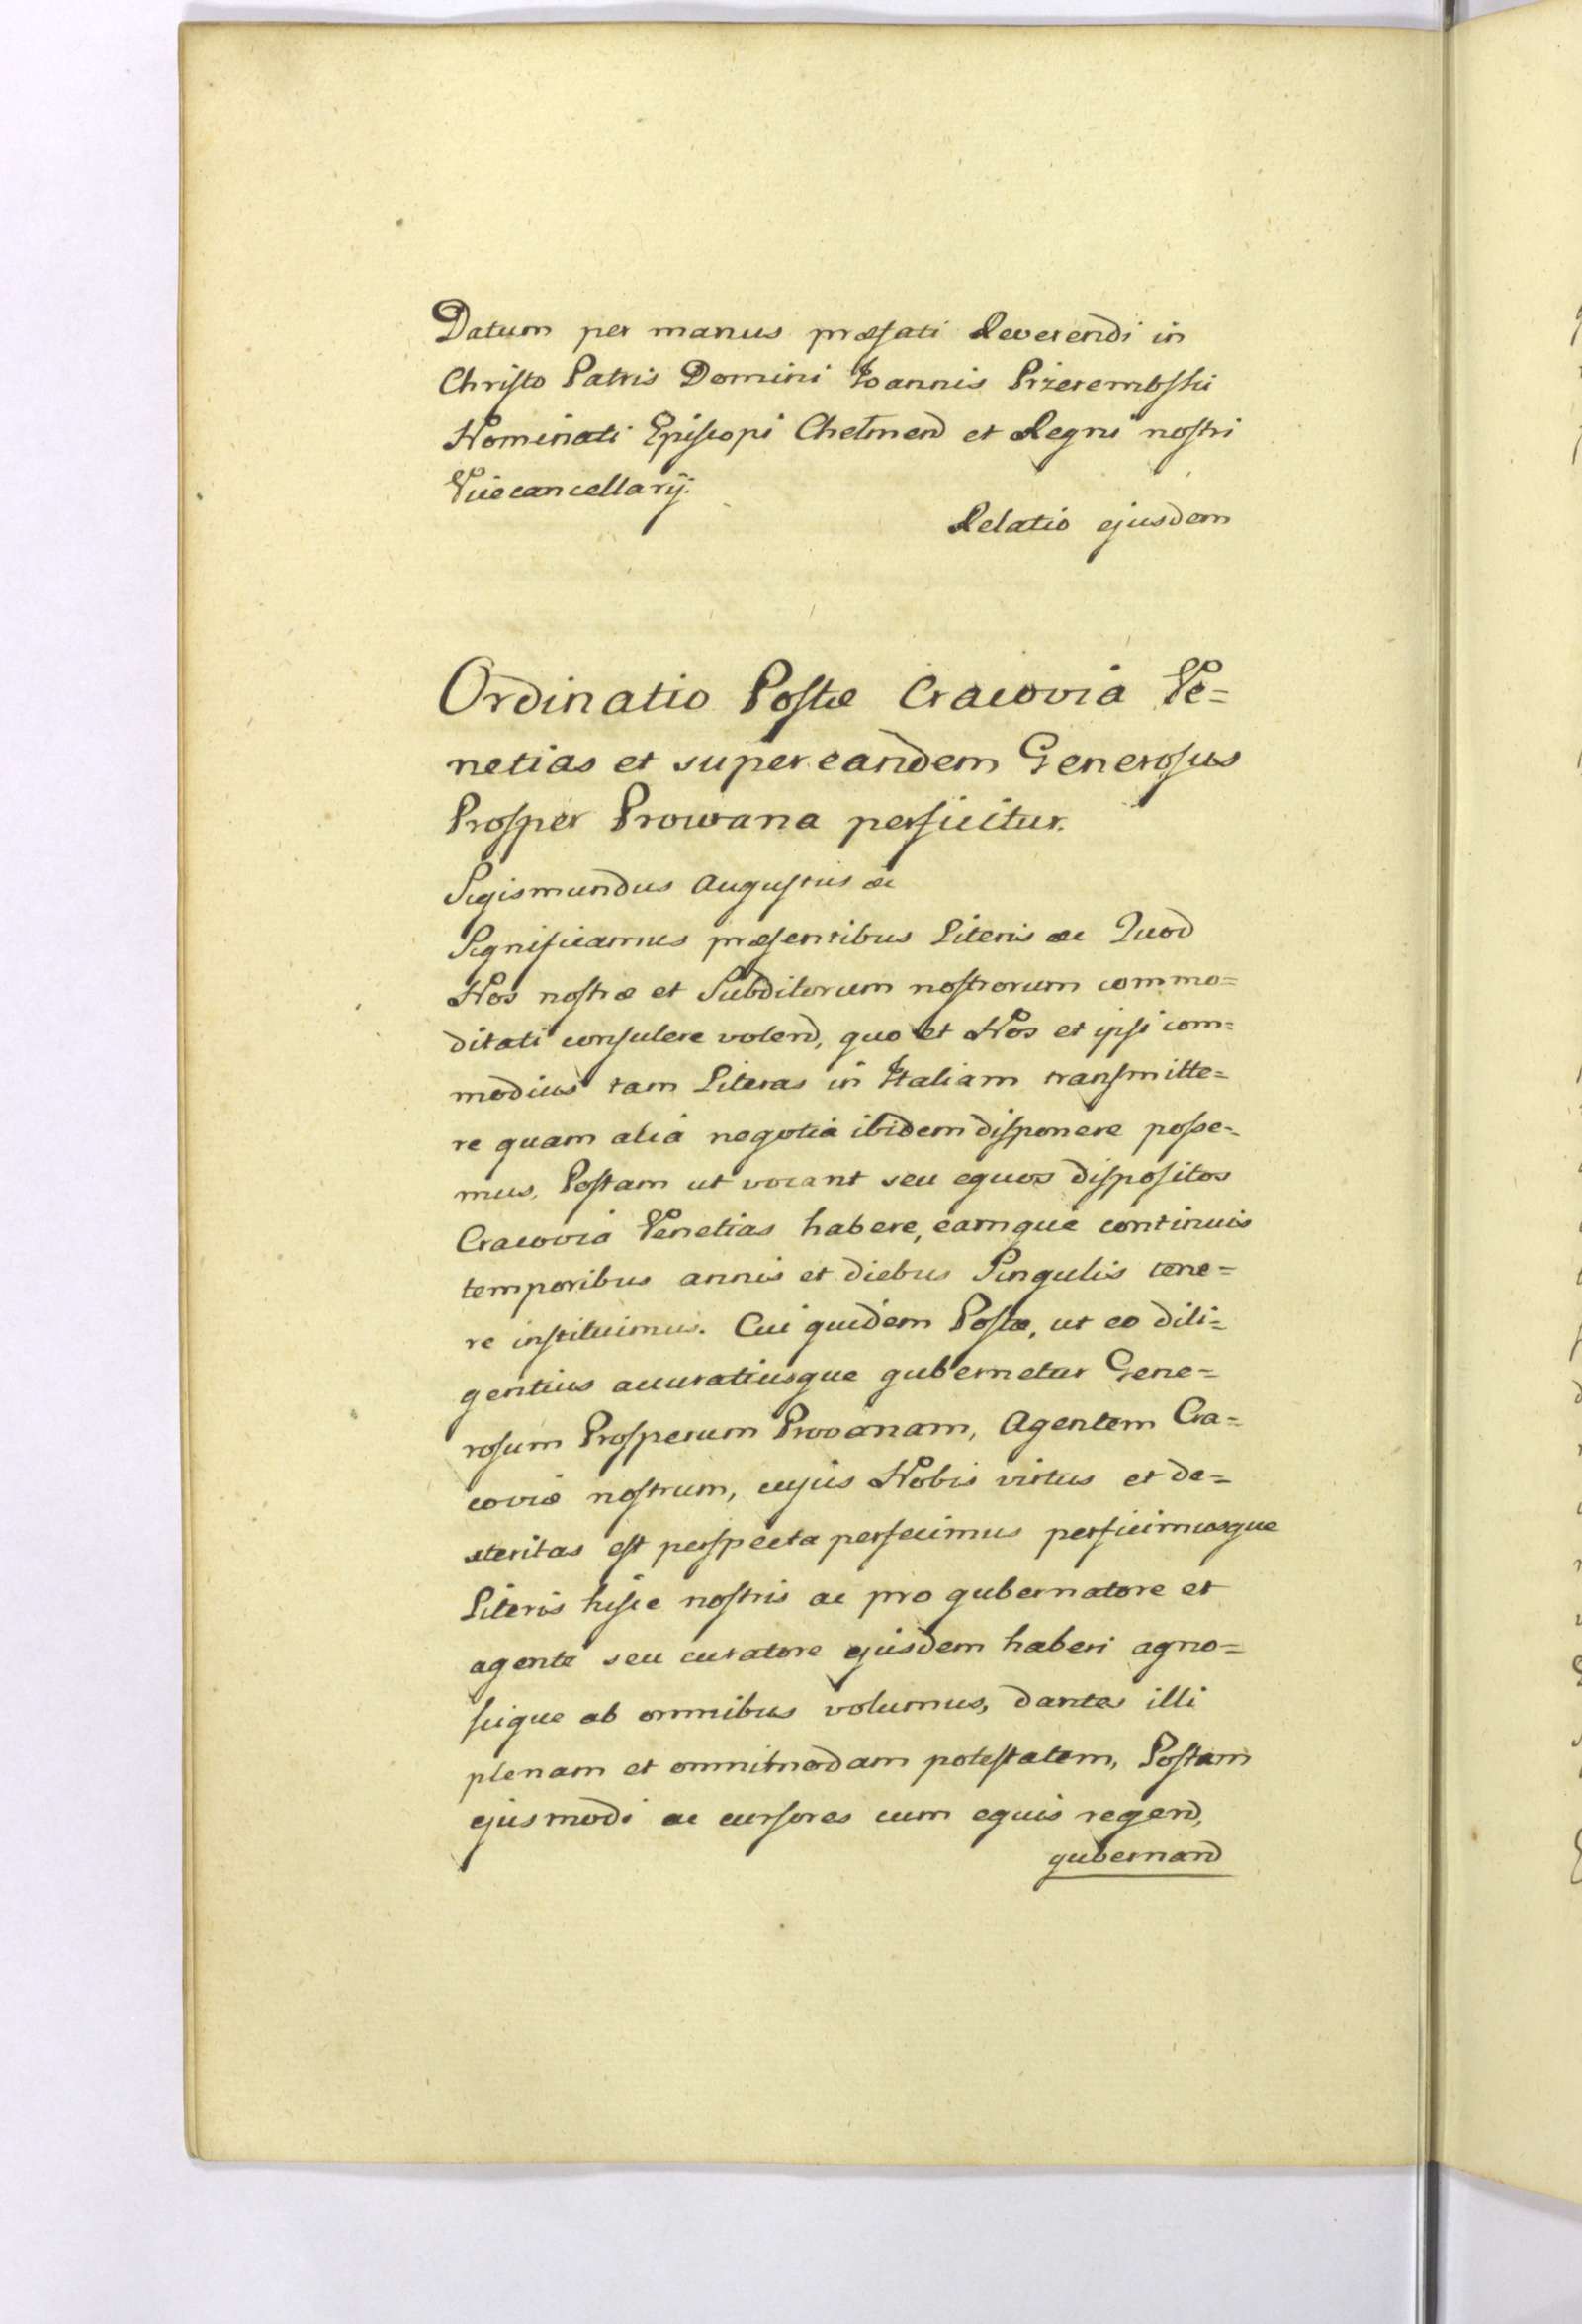 Datum per manus præfati Reverendi in
Christo Patris Domini Joannis Przerembski
Nominati Episcopi Chełmend et Regni nostri
Vicecancellarij.
Relatio ejusdem
Ordinatio Postæ Cracovia Ve=
netias et super eandem Generosus
Prosper Prowana perficitur.
Sigismundus Augustus &c
Significamus præsentibus Literis &c Quod
Nos nostræ et Subditorum nostrorum commo=
ditati consulere volend, quo et Nos et ipsi com=
modius tam Literas in Italiam transmitte=
re quam alia negotia ibidem disponere posse=
mus, Postam ut vocant seu equos dispositos
Cracovia Venetias habere, eamque continuis
temporibus annis et diebus Singulis tene=
re instituimus. Cui quidem Postæ, ut eo dili=
gentius accuratiusque gubernetur Gene=
rosum Prosperum Provanam, Agentem Cra=
coviæ nostrum, cujus Nobis virtus et de=
xteritas est perspecta perfecimus perficimusque
Literis hisce nostris ac pro gubernatore et
agente seu curatore ejusdem haberi agno=
scique ab omnibus volumus, dantes illi
plenam et omnimodam potestatem, Postam
ejusmodi ac cursores cum equis regend,
gubernand